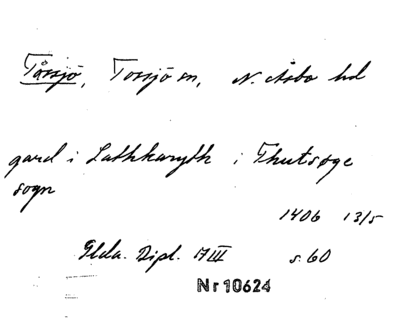 Tåssjö, Tossjö sn, N. Åsbo hd
gard i Lathkaryth i Thutsøge
sogn
1406 13/5
Glda. Dipl. A III s. 60
Nr 10624